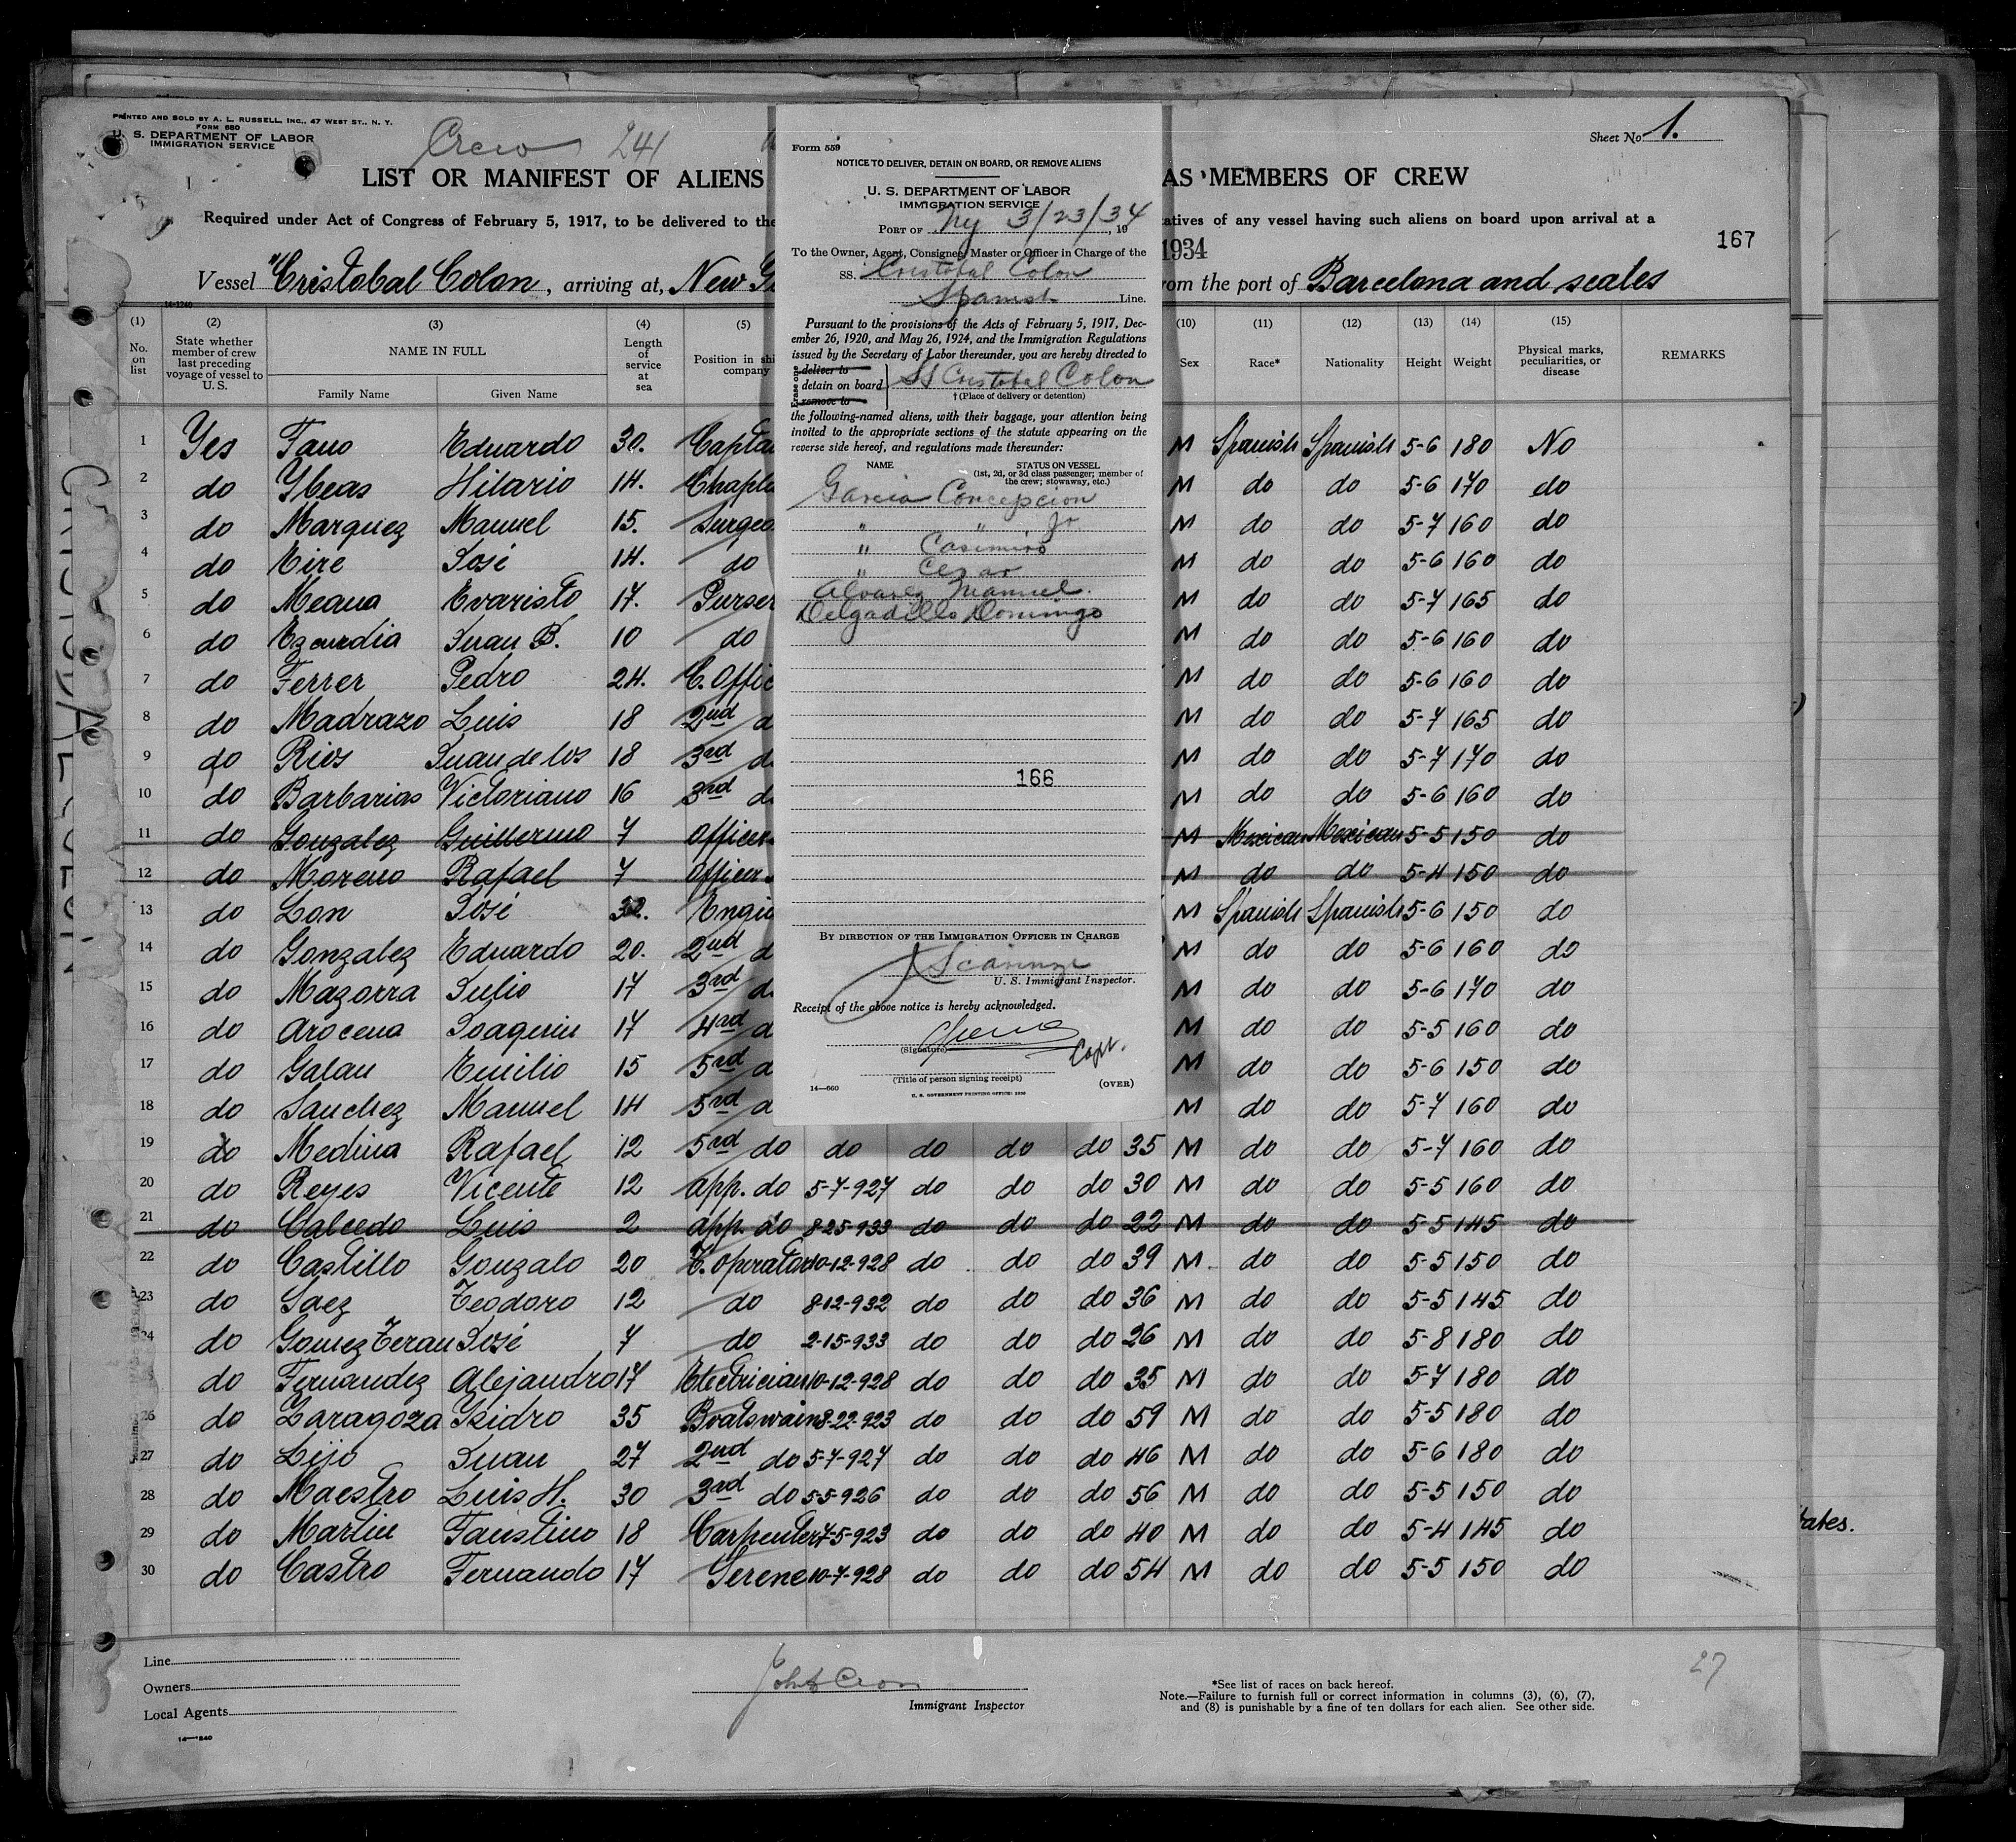 PRINTED AND SOLD BY A. L. RUSSELL, INC., 47 WEST ST., N. Y.
FORM 680
U. S. DEPARTMENT OF LABOR
IMMIGRATION SERVICE
Crew 241
Sheet No 1.
LIST OR MANIFEST OF ALIENS
AS MEMBERS OF CREW
Required under Act of Congress of February 5, 1917, to be delivered to the
atives of any vessel having such aliens on board upon arrival at a
1934
167
Vessel "Cristobal Colon, arriving at, New
rom the port of Barcelona and scales
14-1240
(1) No. on list
(2) State whether member of crew last preceding voyage of vessel to U. S.
(3) NAME IN FULL
Family Name Given Name
(4) Length of service at sea
(5) Position in shi company
(10) Sex
(11) Race*
(12) Nationality
(13) Height
(14) Weight
(15) Physical marks, peculiarities, or disease
REMARKS
1 Yes Fano Eduardo 30. Captai M Spanish Spanish 5-6 180 No
2 do Ybeas Hilario 14. Chapla M do do 5-6 170 do
3 do Marquez Manuel 15. Surgeo M do do 5-7 160 do
4 do Eire José 14. do M do do 5-6 160 do
5 do Meana Evaristo 17. Purser M do do 5-7 165 do
6 do Ezcurdia Juan B. 10 do M do do 5-6 160 do
7 do Ferrer Pedro 24. C. Offic M do do 5-6 160 do
8 do Madrazo Luis 18 2nd d M do do 5-7 165 do
9 do Rios Juan de los 18 3rd d M do do 5-7 170 do
10 do Barbarias Victoriano 16 3rd d M do do 5-6 160 do
11 do Gonzalez Guillermo 7 Officer M Mexican Mexican 5-5 150 do
12 do Moreno Rafael 7 Officer M do do 5-4 150 do
13 do Lon José 32. Engin M Spanish Spanish 5-6 150 do
14 do Gonzalez Eduardo 20. 2nd d M do do 5-6 160 do
15 do Mazorra Julio 17 3rd d M do do 5-6 170 do
16 do Arocena Joaquin 17 4rd d M do do 5-5 160 do
17 do Galan Emilio 15 5rd d M do do 5-6 150 do
18 do Sanchez Manuel 14 5rd d M do do 5-7 160 do
19 do Medina Rafael 12 5rd do do do do do 35 M do do 5-7 160 do
20 do Reyes Vicente 12 app. do 5-7-927 do do do 30 M do do 5-5 160 do
21 do Calcedo Luis 2 app. do 8-25-933 do do do 22 M do do 5-5 145 do
22 do Castillo Gonzalo 20 T. Operator 10-12-928 do do do 39 M do do 5-5 150 do
23 do Saez Teodoro 12 do 8-12-932 do do do 36 M do do 5-5 145 do
24 do Gomez Teran José 7 do 2-15-933 do do do 26 M do do 5-8 180 do
do Fernandez Alejandro 17 Electrician 10-12-928 do do do 35 M do do 5-7 180 do
26 do Zaragoza Isidro 35 Boatswain 8-22-923 do do do 59 M do do 5-5 180 do
27 do Lijo Juan 27 2nd do 5-7-927 do do do 46 M do do 5-6 180 do
28 do Maestro Luis H. 30 3rd do 5-5-926 do do do 56 M do do 5-5 150 do
29 do Martin Faustino 18 Carpenter 7-5-923 do do do 40 M do do 5-4 145 do
30 do Castro Fernando 17 Serene 10-7-928 do do do 54 M do do 5-5 150 do
Line
Owners
Local Agents
14-1240
Immigrant Inspector
*See list of races on back hereof.
Note.—Failure to furnish full or correct information in columns (3), (6), (7),
and (8) is punishable by a fine of ten dollars for each alien. See other side.
27
tates.
Form 559
NOTICE TO DELIVER, DETAIN ON BOARD, OR REMOVE ALIENS
U. S. DEPARTMENT OF LABOR
IMMIGRATION SERVICE
PORT OF Ny 3/23/34, 19
To the Owner, Agent, Consignee, Master or Officer in Charge of the
SS. Cristobal Colon
Spanish Line.
Pursuant to the provisions of the Acts of February 5, 1917, Dec-
ember 26, 1920, and May 26, 1924, and the Immigration Regulations
issued by the Secretary of Labor thereunder, you are hereby directed to
Erase one
deliver to
detain on board
remove to
SS Cristobal Colon
† (Place of delivery or detention)
the following-named aliens, with their baggage, your attention being
invited to the appropriate sections of the statute appearing on the
reverse side hereof, and regulations made thereunder:
NAME
STATUS ON VESSEL
(1st, 2d, or 3d class passenger; member of
the crew; stowaway, etc.)
Garcia Concepcion
" " Jr
" Casimiro
" Cezar
Alvarez Manuel.
Delgadillo Domingo
166
BY DIRECTION OF THE IMMIGRATION OFFICER IN CHARGE
U. S. Immigrant Inspector.
Receipt of the above notice is hereby acknowledged.
(Signature)
Capt.
(Title of person signing receipt)
14—660
(OVER)
U. S. GOVERNMENT PRINTING OFFICE: 1930